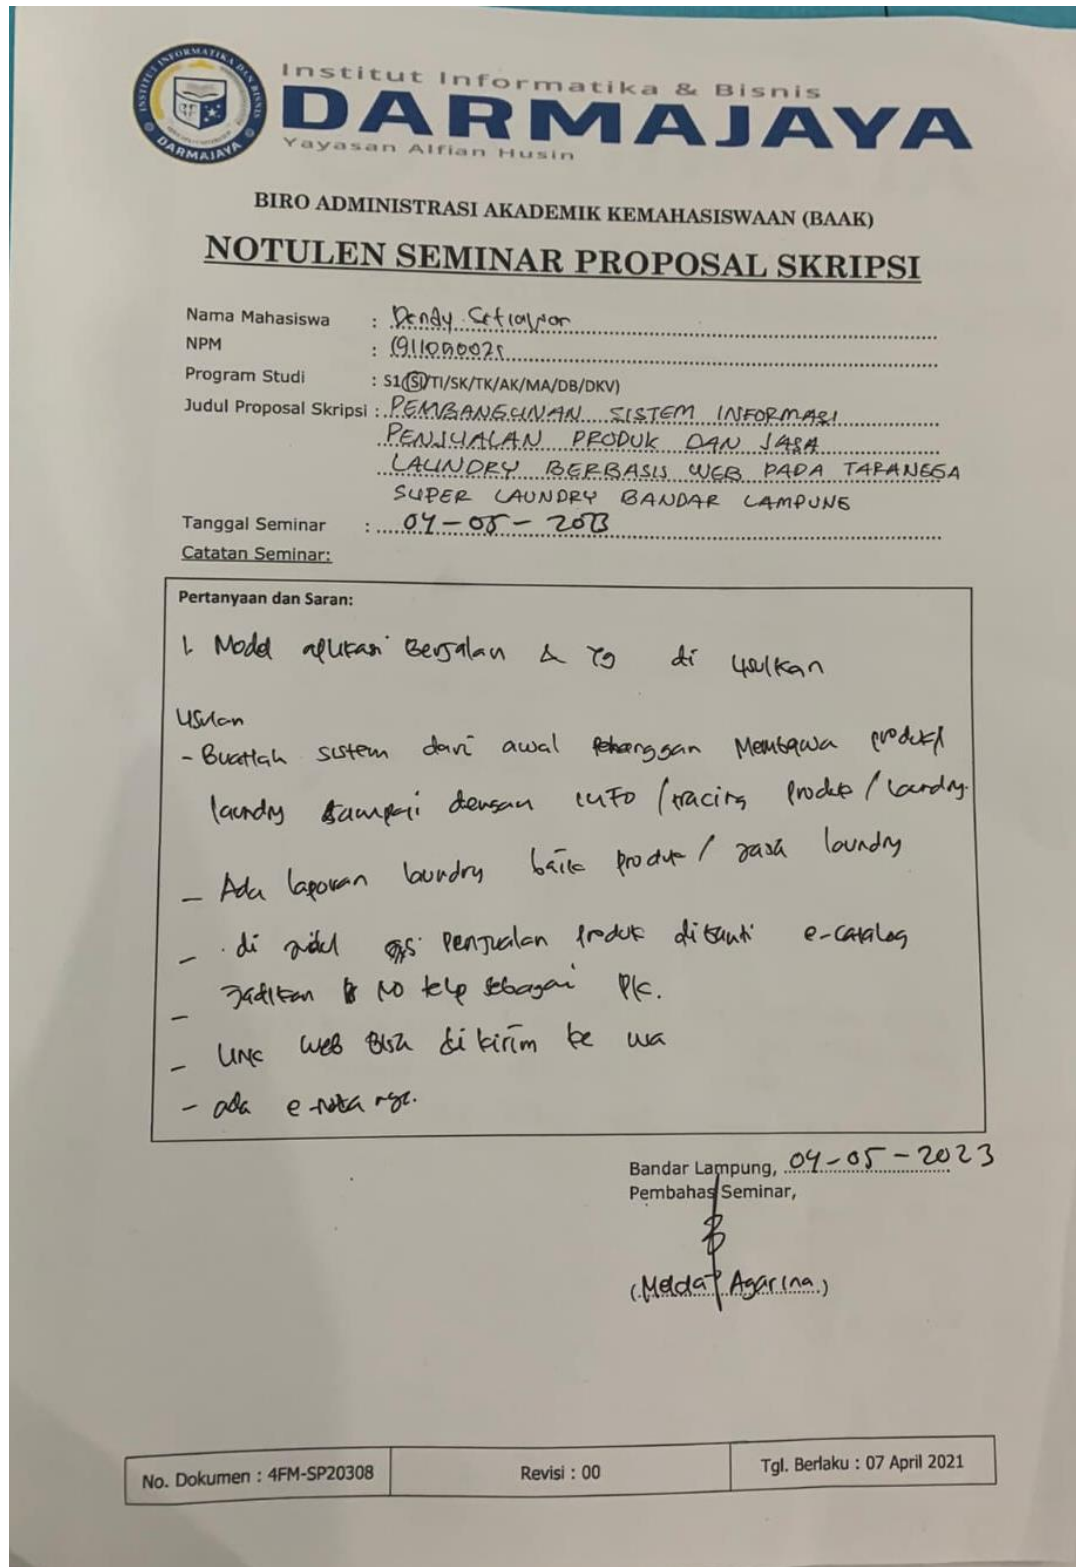 INSTITUT INFORMATIKA DAN BISNIS
DARMAJAYA
Institut Informatika & Bisnis
DARMAJAYA
Yayasan Alfian Husin
BIRO ADMINISTRASI AKADEMIK KEMAHASISWAAN (BAAK)
NOTULEN SEMINAR PROPOSAL SKRIPSI
Nama Mahasiswa : Dendy Setiawan
NPM : 1911050025
Program Studi : S1(SI/TI/SK/TK/AK/MA/DB/DKV)
Judul Proposal Skripsi : PEMBANGUNAN SISTEM INFORMASI
PENJUALAN PRODUK DAN JASA
LAUNDRY BERBASIS WEB PADA TAPANEGA
SUPER LAUNDRY BANDAR LAMPUNG
Tanggal Seminar : 04-05-2023
Catatan Seminar:
Pertanyaan dan Saran:
1. Model aplikasi Berjalan & Yg di usulkan
Usulan
- Buatlah sistem dari awal Pelanggan Membawa produk
laundry sampai dengan info / tracing Produk / laundry.
- Ada laporan laundry baik produk / jasa laundry
- di judul Penjualan Produk diganti e-catalog
- Jadikan No telp sebagai PK.
- Link WEB Bisa di kirim ke wa
- ada e-nota nya.
Bandar Lampung, 04-05-2023
Pembahas Seminar,
(Melda Agarina)
No. Dokumen : 4FM-SP20308
Revisi : 00
Tgl. Berlaku : 07 April 2021